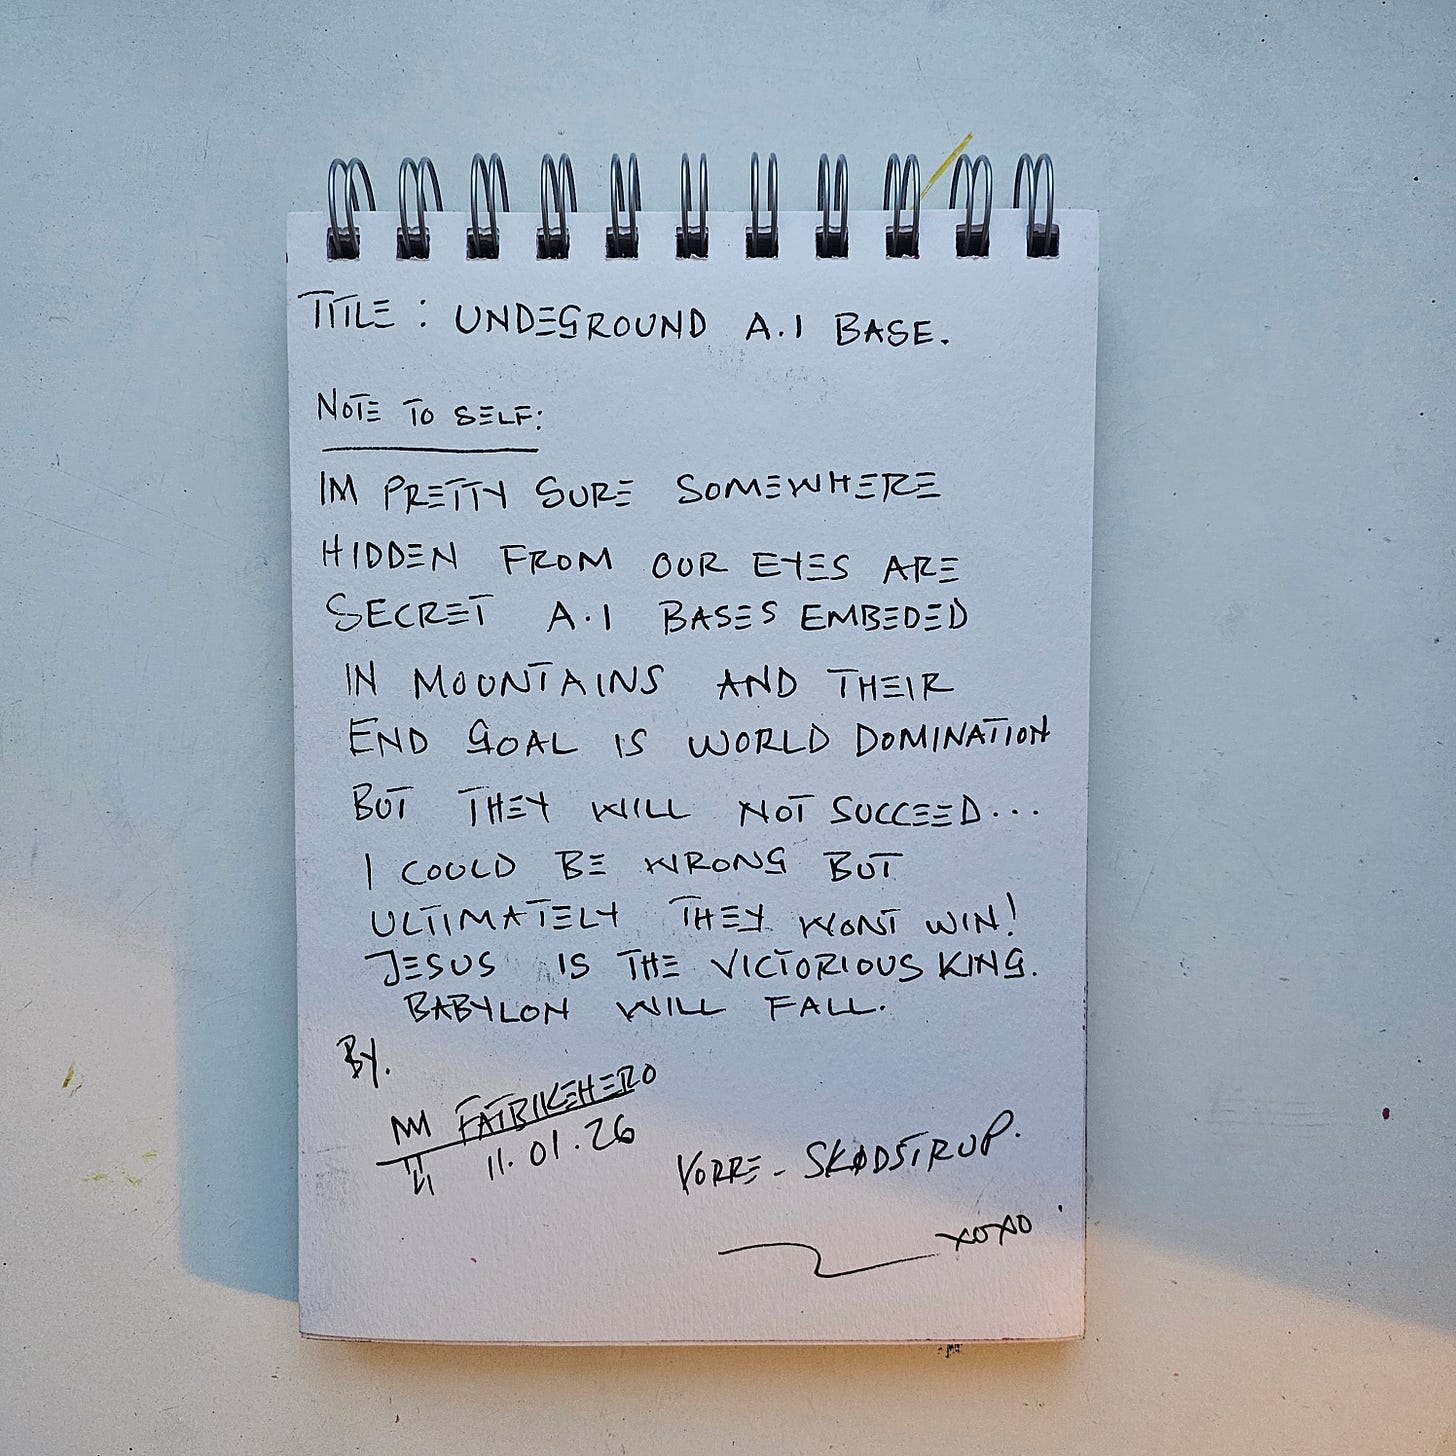 TITLE : UNDEGROUND A.I BASE.
NOTE TO SELF:
IM PRETTY SURE SOMEWHERE
HIDDEN FROM OUR EYES ARE
SECRET A.I BASES EMBEDED
IN MOUNTAINS AND THEIR
END GOAL IS WORLD DOMINATION
BUT THEY WILL NOT SUCCEED...
I COULD BE WRONG BUT
ULTIMATELY THEY WONT WIN!
JESUS IS THE VICTORIOUS KING.
BABYLON WILL FALL.
BY.
FATBIKEHERO
11.01.26
VORRE - SKØDSTRUP.
XOXO